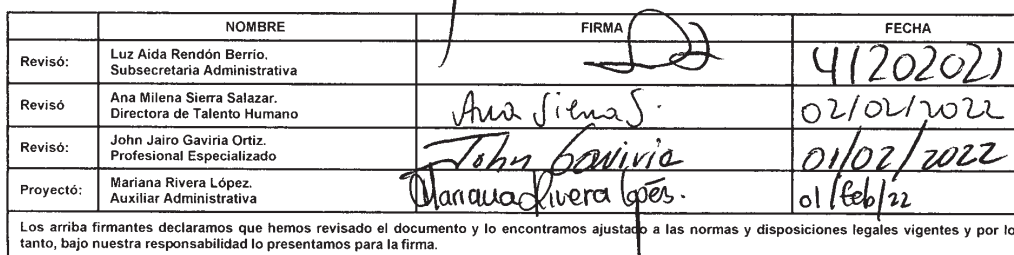 NOMBRE FIRMA FECHA
Revisó: Luz Aida Rendón Berrío.
Subsecretaria Administrativa
41202021
Revisó Ana Milena Sierra Salazar.
Directora de Talento Humano
Ana Sierra S. 02/02/2022
Revisó: John Jairo Gaviria Ortiz.
Profesional Especializado
John Gaviria 01/02/2022
Proyectó: Mariana Rivera López.
Auxiliar Administrativa
Mariana Rivera López. 01/feb/22
Los arriba firmantes declaramos que hemos revisado el documento y lo encontramos ajustado a las normas y disposiciones legales vigentes y por lo
tanto, bajo nuestra responsabilidad lo presentamos para la firma.